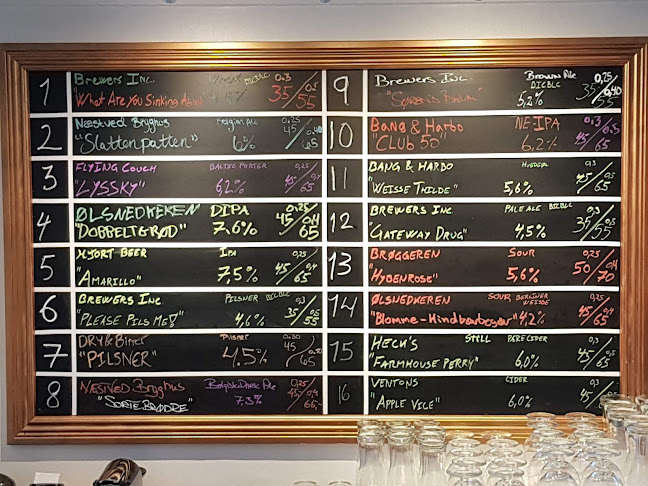 1 Brewers Inc. 0.3
"What Are You Sinking About 35/55
2 Næstved Bryghus Belgian Ale 0,25
"Slattenpatten" 6% 45/65
3 FLYING COUCH BALTIC PORTER 0,25
"LYSSKY" 6,2% 45/65
4 ØLSNEDKEREN DIPA 0,25 0,4
"DOBBELT&RØD" 7,6% 45/65
5 HJORT BEER IPA 0,25 0,4
"AMARILLO" 7,5% 45/65
6 BREWERS INC. PILSNER DICBLC 0,3 0,5
"PLEASE PILS ME!" 4,6% 35/55
7 DRY & Bitter Pilsner 0.30
"PILSNER" 4,5% 45/65
8 NÆSTVED BryGhus 0,25
"SORTEBRØDRE" 7,3% 45/66,-
9 Brewers Inc. Brown Ale DICBLC 0,25 0,40
5,2% 35/55
10 Bang & Harbo NE-IPA 0,3 0,5
"CLUB 50" 6,2% 45/65
11 BANG & HARBO 0,3
"WEISSE THILDE" 5,6% 45/65
12 BREWERS INC. PALE ALE DICBLC 0,3
"GATEWAY DRUG" 4,5% 35/55
13 BRØGGEREN SOUR 0,25 0,4
"HYBENROSE" 5,6% 50/70
14 ØLSNEDKEREN SOUR BERLINER WEISSE 0,25
"Blomme-Hindbærbegær" 4,2% 45/65
15 HECK'S STILL PERECIDER 0,3
"FARMHOUSE PERRY" 6,0% 45/65
16 VENTONS CIDER 0,3
"APPLE VICE" 6,0% 45/65